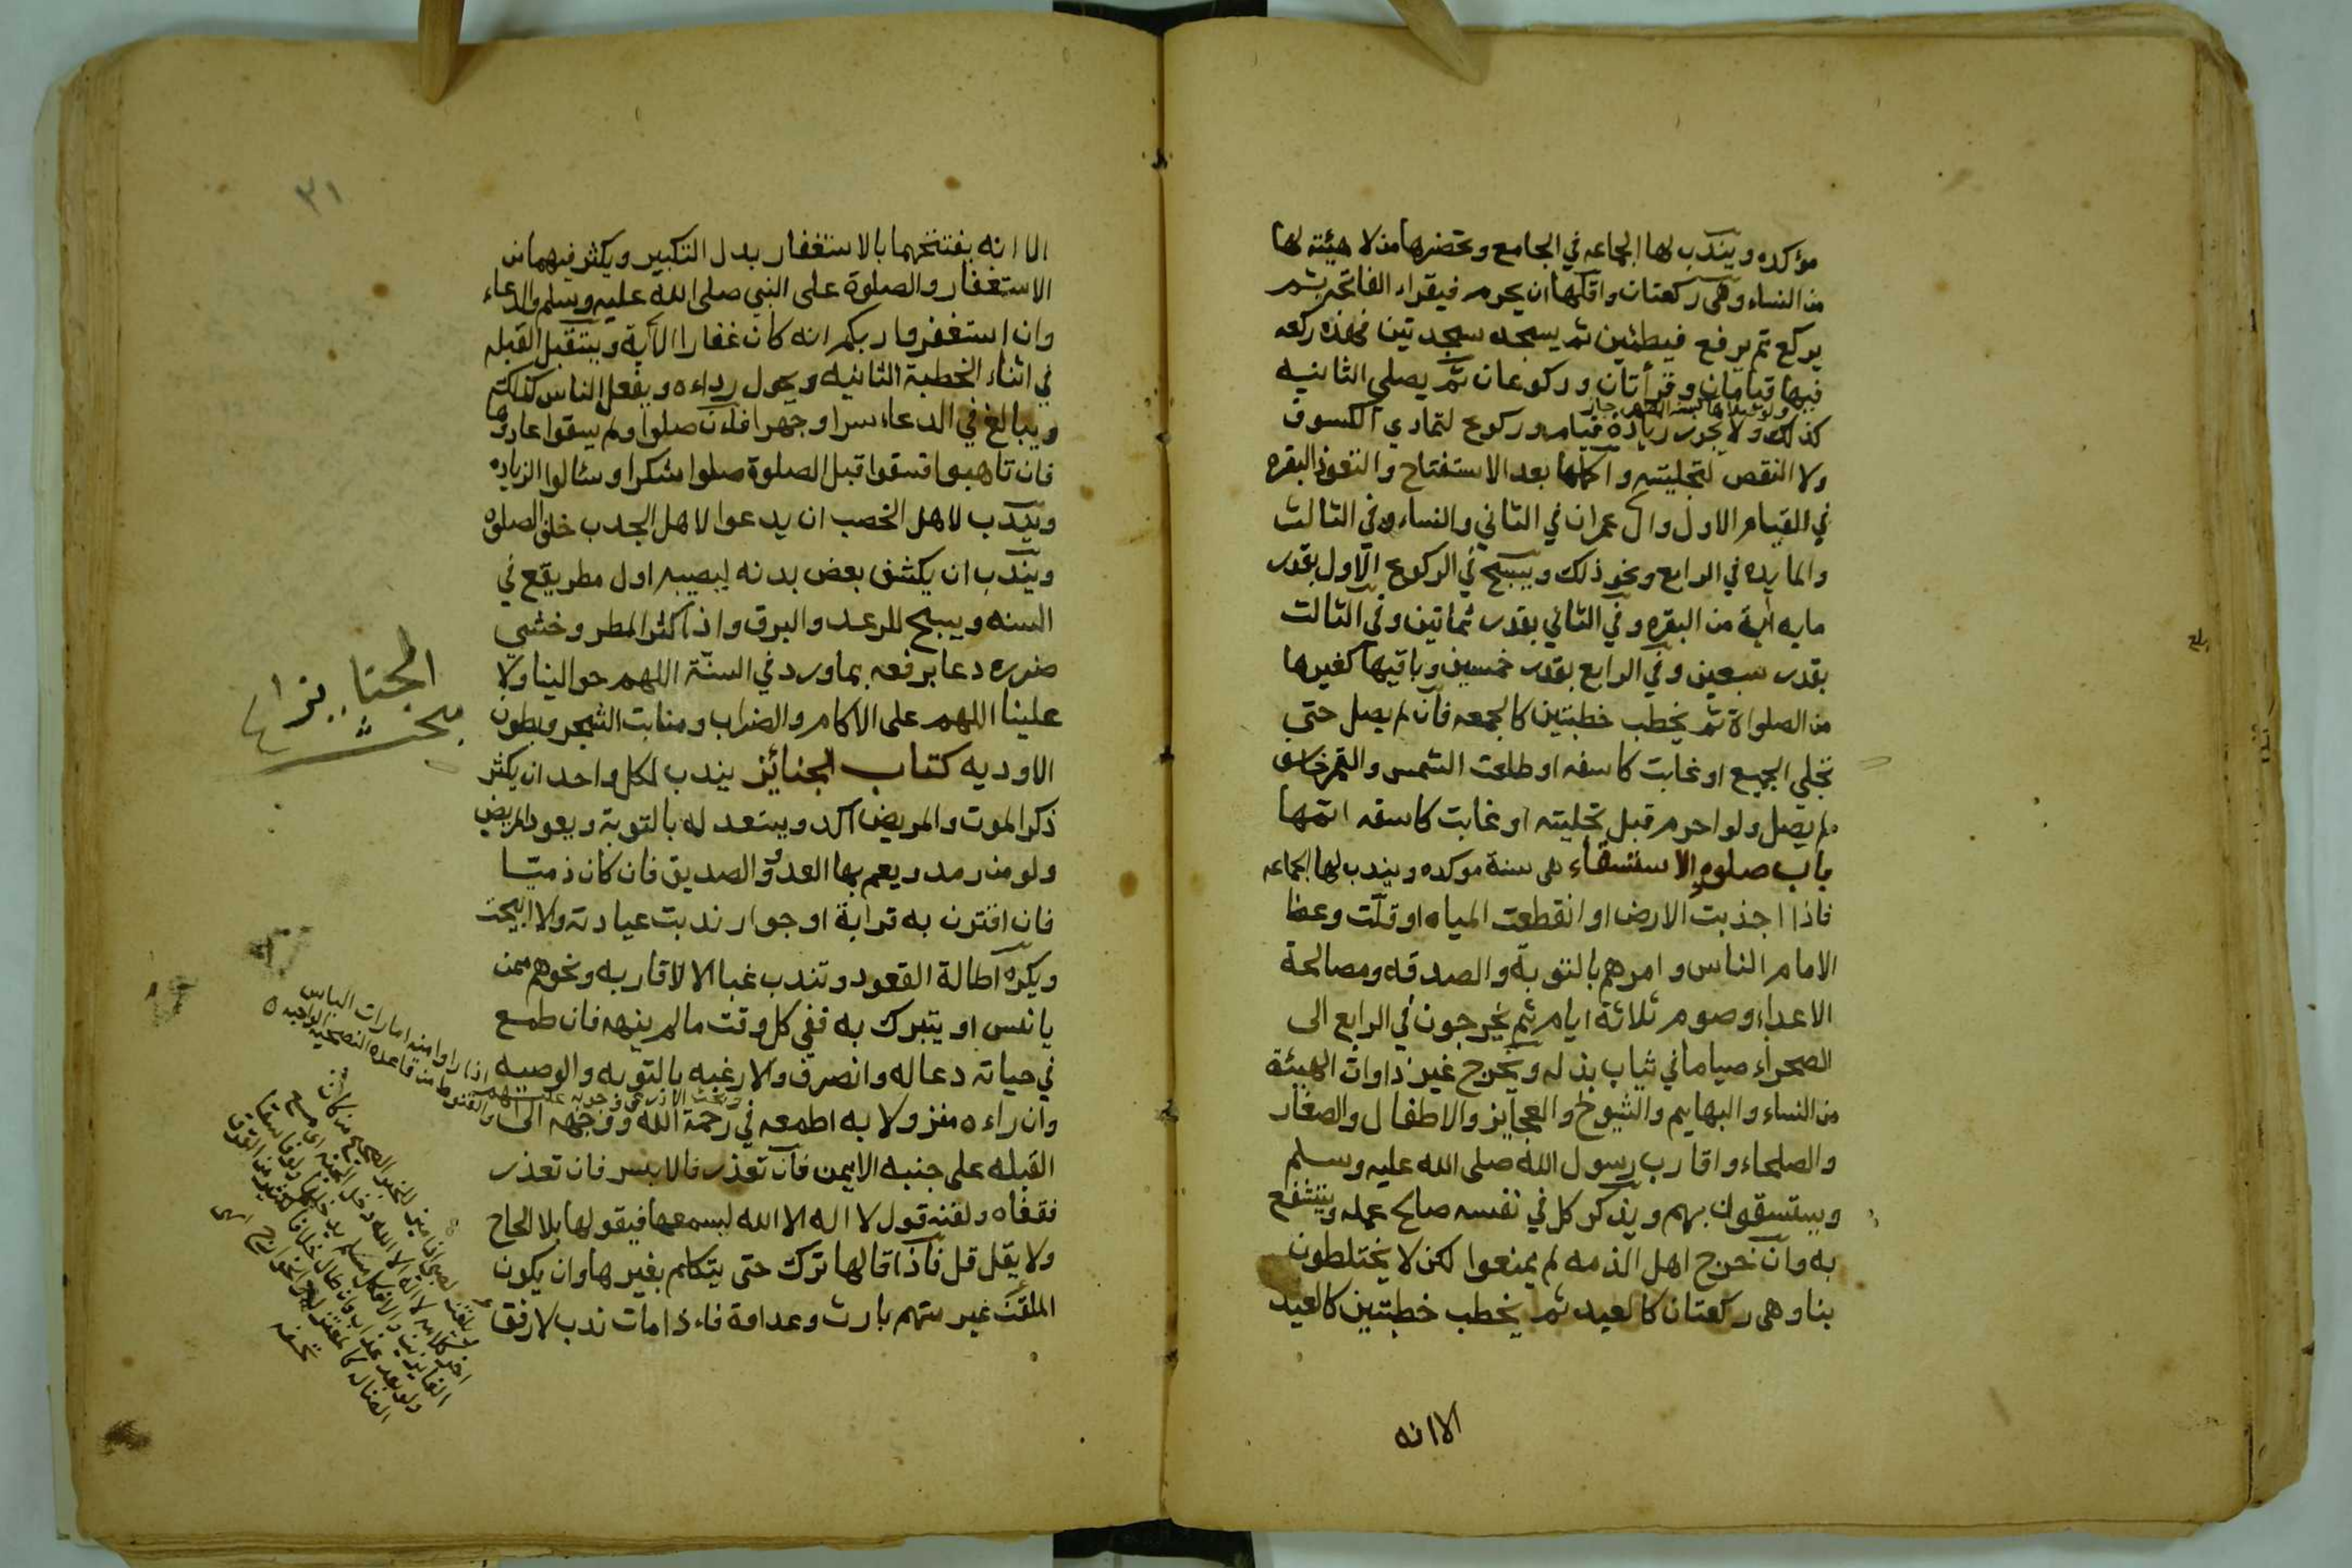 مؤكده ويندب لها الجماعه في الجامع وتحضرها من لا هيئة لها
من النساء وهي ركعتان واقلها ان يحرم فيقراء الفاتحه ثم
يركع ثم يرفع فيطمئين ثم يسجد سجدتين فهذه ركعه
فيها قيامان وقرأتان وركوعان ثم يصلي الثانيه
ولو صلاها كسنة الظهر جاز
كذلك ولا يجوز زيادة قيام وركوع لتمادي الكسوف
ولا النقص لتجليته واكملها بعد الاستفتاح والتعوذ البقره
في القيام الاول وال عمران في الثاني والنساء في الثالث
والمايده في الرابع ونحو ذلك ويسبح في الركوع الاول بقدر
مايه اية من البقره وفي الثاني بقدر ثمانين وفي الثالث
بقدر سبعين وفي الرابع بقدر خمسين وباقيها كغيرها
من الصلواة ثم يخطب خطبتين كالجمعه فان لم يصل حتى
تجلي الجميع او غابت كاسفه او طلعت الشمس والقمر خاسف
لم يصل ولو احرم قبل تجليته او غابت كاسفه اتمها
باب صلوة الاستسقاء هي سنة موكده ويندب لها الجماعه
فاذا اجذبت الارض او انقطعت المياه او قلّت وعظ
الامام الناس وامرهم بالتوبة والصدقه ومصالحة
الاعداء وصوم ثلاثة ايام ثم يخرجون في الرابع الى
الصحراء صياما في ثياب بذله ويخرج غير ذاوات الهيئة
من النساء والبهايم والشيوخ والعجايز والاطفال والصغار
والصلحاء واقارب رسول الله صلى الله عليه وسلم
ويستسقون بهم ويذكر كل في نفسه صالح عمله ويتشفع
به وان خرج اهل الذمه لم يمنعوا لكن لا يختلطون
بنا وهي ركعتان كالعيد ثم يخطب خطبتين كالعيد
الا انه
٣١
الا انه يفتتحهما بالاستغفار بدل التكبير ويكثر فيهما من
الاستغفار والصلوة على النبي صلى الله عليه وسلم والدعاء
وان استغفروا ربكم انه كان غفارا الآية ويستقبل القبله
في اثناء الخطبة الثانيه ويحول رداءه ويفعل الناس كذلك
ويبالغ في الدعاء سرا وجهرا فان صلوا ولم يسقوا عادوها
فان تاهبوا فسقوا قبل الصلوة صلوا شكرا وسئالوا الزياده
ويندب لاهل الخصب ان يدعوا لاهل الجدب خلف الصلوه
ويندب ان يكشف بعض بدنه ليصيبه اول مطر يقع في
السنه ويسبح للرعد والبرق واذا كثر المطر وخشي
ضرره دعا برفعه بما ورد في السنّة اللهم حوالينا ولا
علينا اللهم على الاكام والضراب ومنابت الشجر وبطون
الاوديه كتاب الجنائز يندب لكل واحد ان يكثر
ذكر الموت والمريض آكد ويستعد له بالتوبة ويعود المريض
ولو من رمد ويعم بها العدو والصديق فان كان ذميّا
فان اقترن به قرابة او جوار ندبت عيادته والا ابيحت
ويكره اطالة القعود وتندب غبا الا لاقاربه ونحوهم ممن
يانس او يتبرك به ففي كل وقت مالم ينهه فان طمع
في حياته دعا له وانصرف والا رغبه بالتوبه والوصيه
وان راءه منزولا به اطمعه في رحمة الله ووجهه الى
القبله على جنبه الايمن فان تعذر فالايسر فان تعذر
فقفاه ولقنه قول لا اله الا الله ليسمعها فيقولها بلا الحاح
ولا يقل قل فاذا قالها ترك حتى يتكلم بغيرها وان يكون
الملقن غير متهم بارث وعداوة فاءذا مات ندب لارفق
الجنايز
مبحث
وبحث الاذرعي وجوبه عليهم اذا راوا منه امارات الياس
والقنوط من قاعدة النصيحه الواجبه